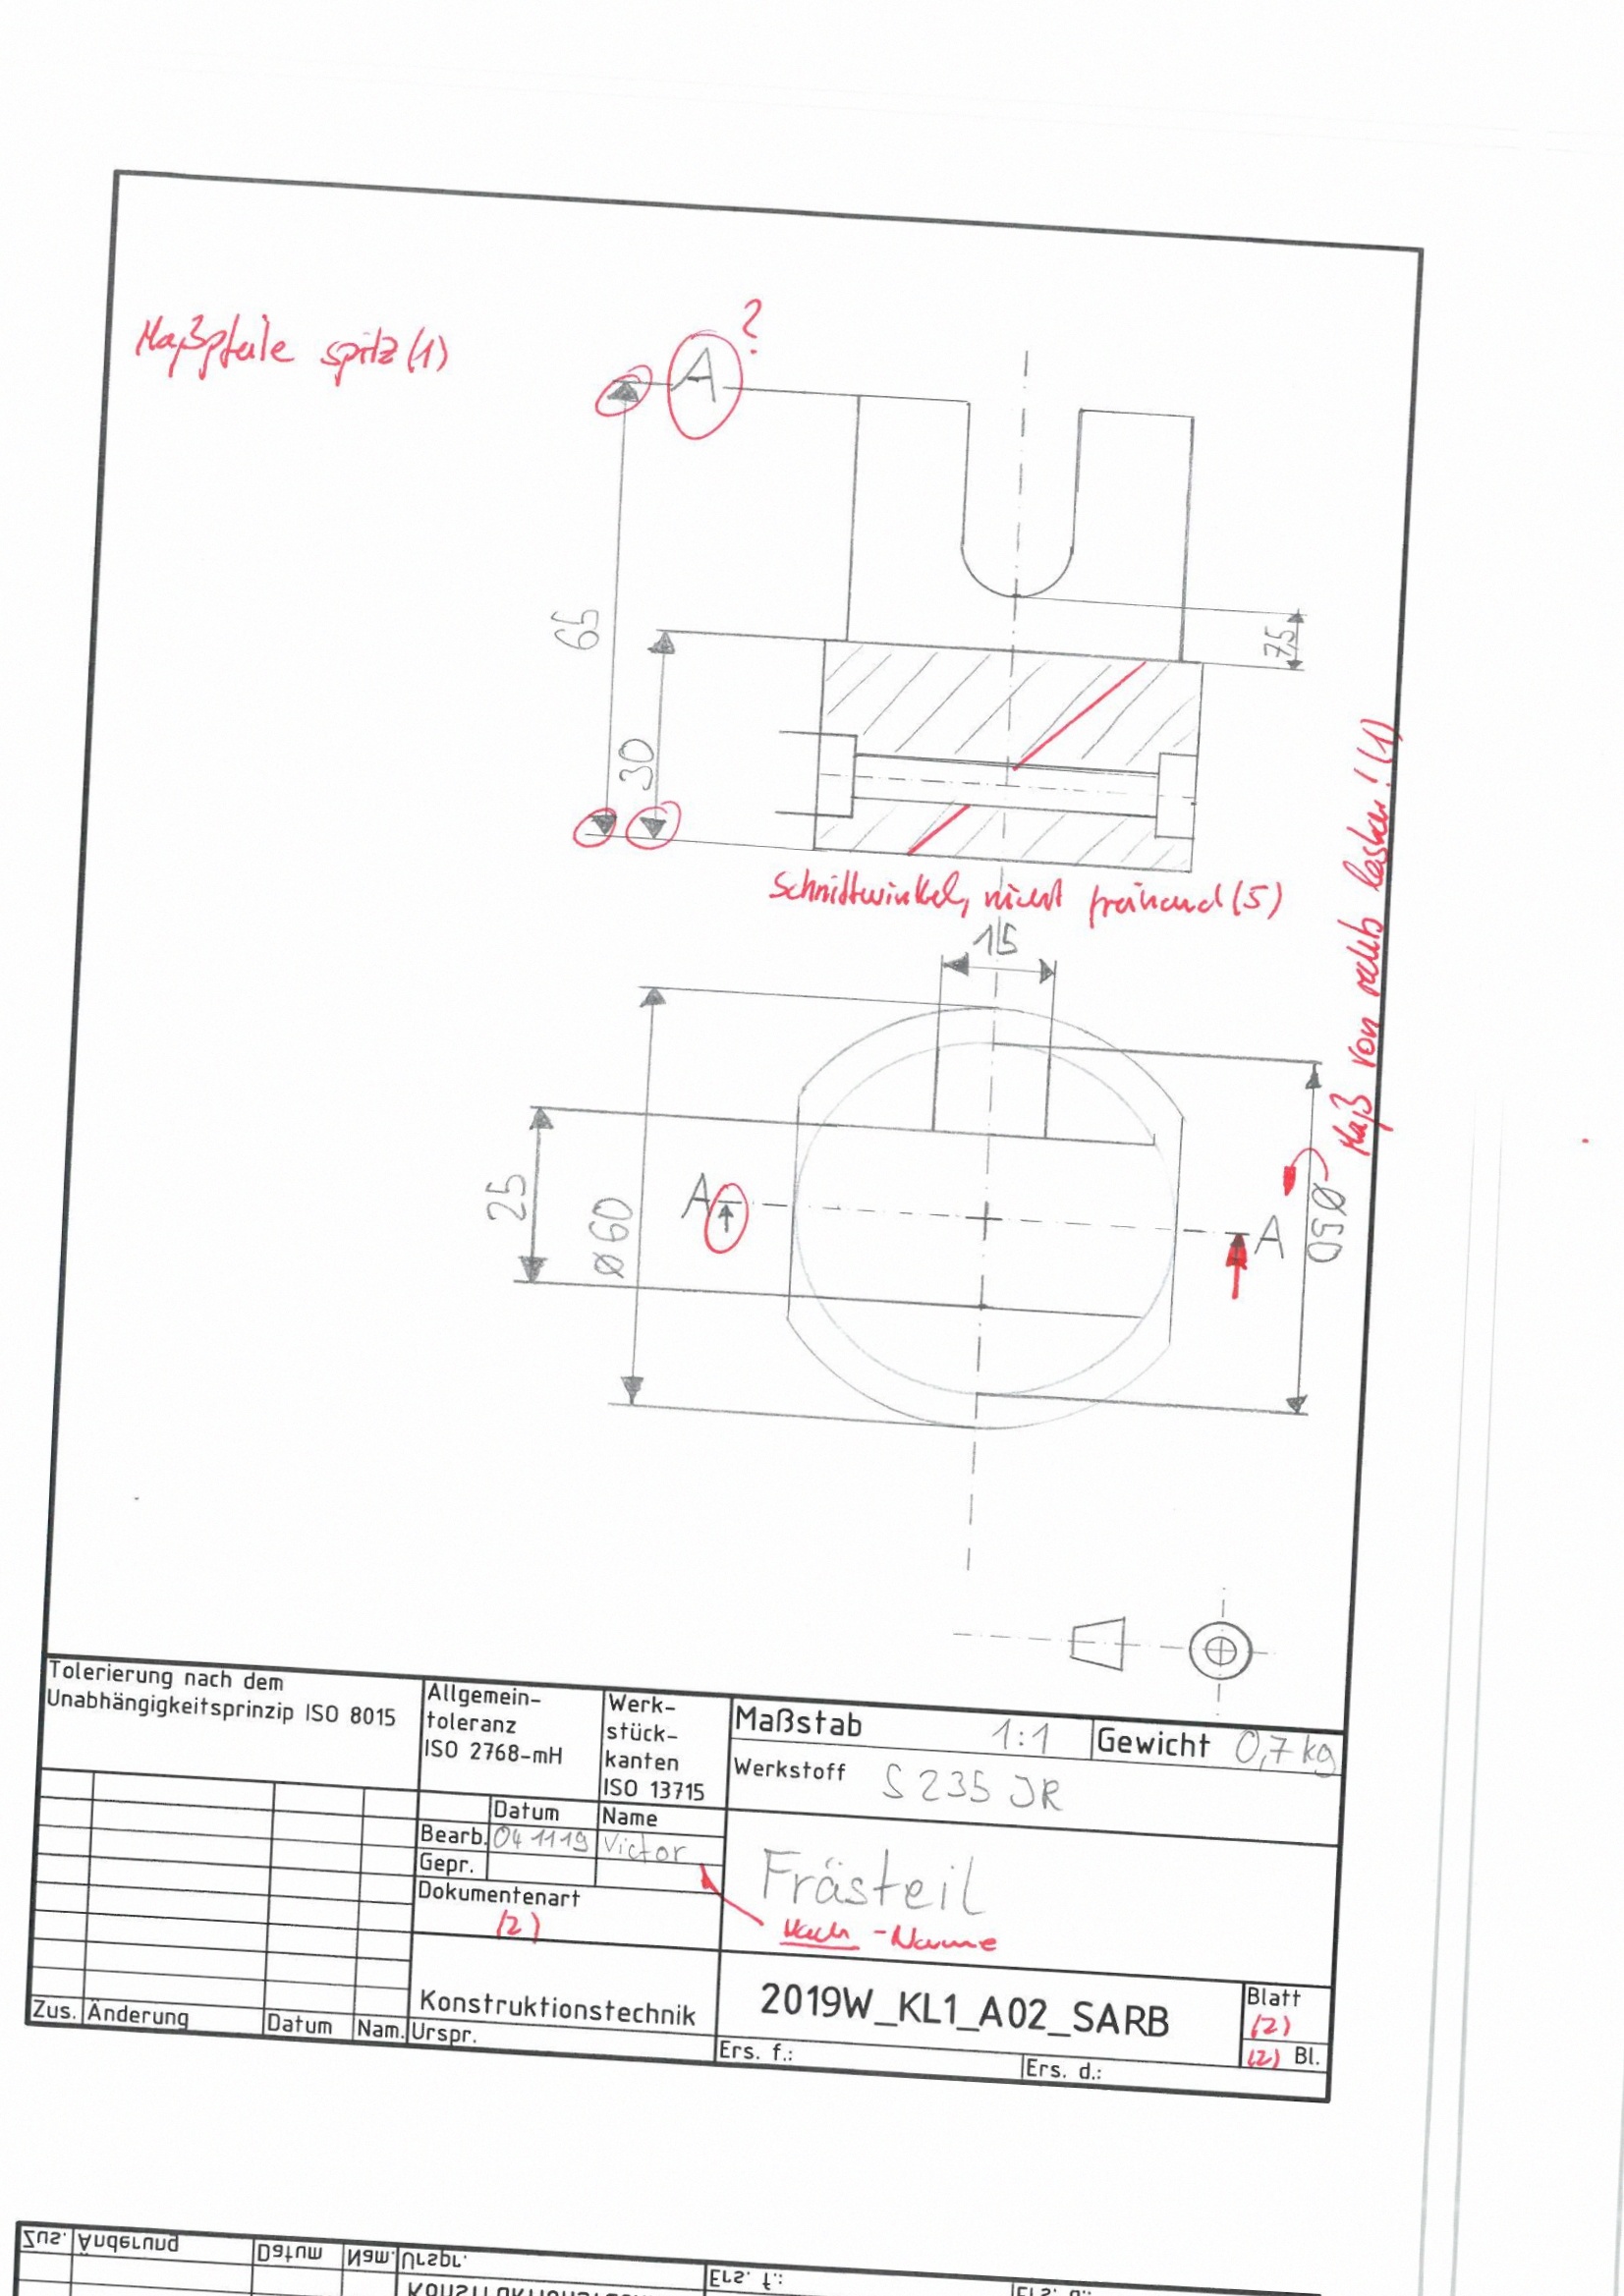 Maßpfeile spitz (1)
?
A
65
30
7,5
Schnittwinkel, nicht freihand (5)
Maß von rechts lesbar! (1)
15
25
Ø60
A
A
Ø50
Tolerierung nach dem
Unabhängigkeitsprinzip ISO 8015
Allgemein-
toleranz
ISO 2768-mH
Werk-
stück-
kanten
ISO 13715
Maßstab 1:1
Gewicht 0,7 kg
Werkstoff S 235 JR
Datum Name
Bearb. 04 11 19 Victor
Gepr.
Dokumentenart
(2)
Frästeil
Nach -Name
Konstruktionstechnik
2019W_KL1_A02_SARB
Blatt
(2)
(2) Bl.
Zus. Änderung Datum Nam. Urspr.
Ers. f.: Ers. d.:
Zus. Änderung Datum Nam. Urspr.
Ers. f.:
Konstruktionstech
Ers. d.: